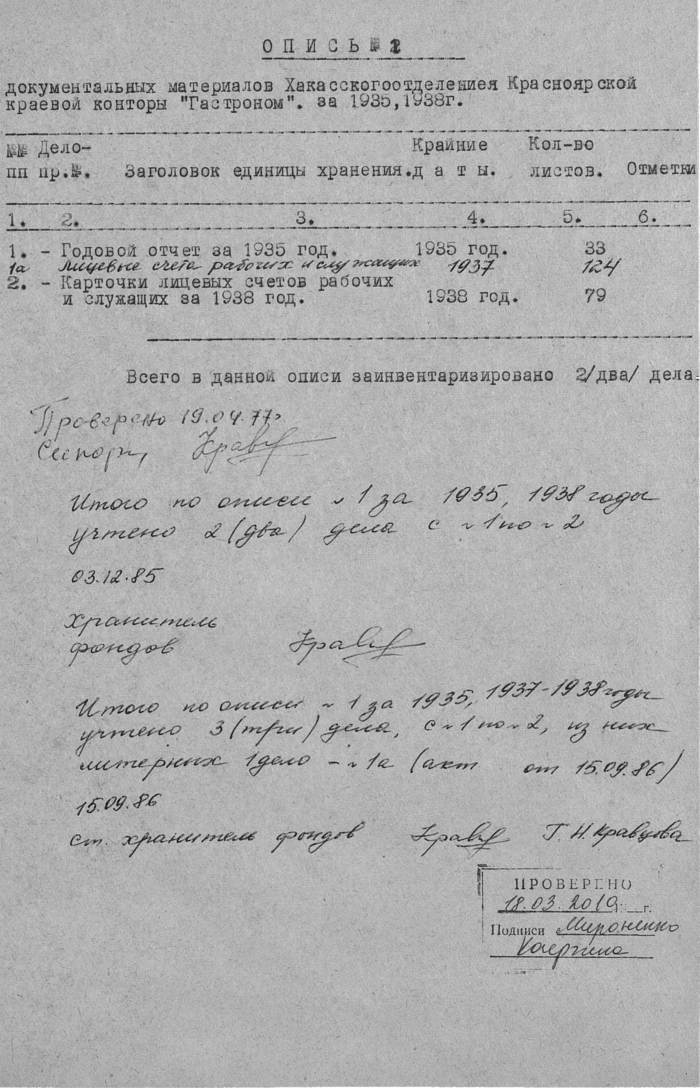 ОПИСЬ № 1
документальных материалов Хакасскогоотделениея Красноярской
краевой конторы "Гастроном". за 1935,1938г.
№№ Дело- Крайние Кол-во
пп пр.№. Заголовок единицы хранения. д а т ы. листов. Отметки
1. 2. 3. 4. 5. 6.
1. - Годовой отчет за 1935 год. 1935 год. 33
1а Лицевые счета рабочих и служащих 1937 124
2. - Карточки лицевых счетов рабочих
и служащих за 1938 год. 1938 год. 79
Всего в данной описи заинвентаризировано 2/два/ дела.
Проверено 19.04.77г.
Итого по описи № 1 за 1935, 1938 годы
учтено 2 (два) дела с № 1 по № 2
03.12.85
хранитель
фондов
Итого по описи № 1 за 1935, 1937-1938 годы
учтено 3 (три) дела, с № 1 по № 2, из них
литерных 1 дело - № 1а (акт от 15.09.86)
15.09.86
ст. хранитель фондов Г.Н. Кравцова
ПРОВЕРЕНО
18.03.2019 г.
Подписи Мироненко